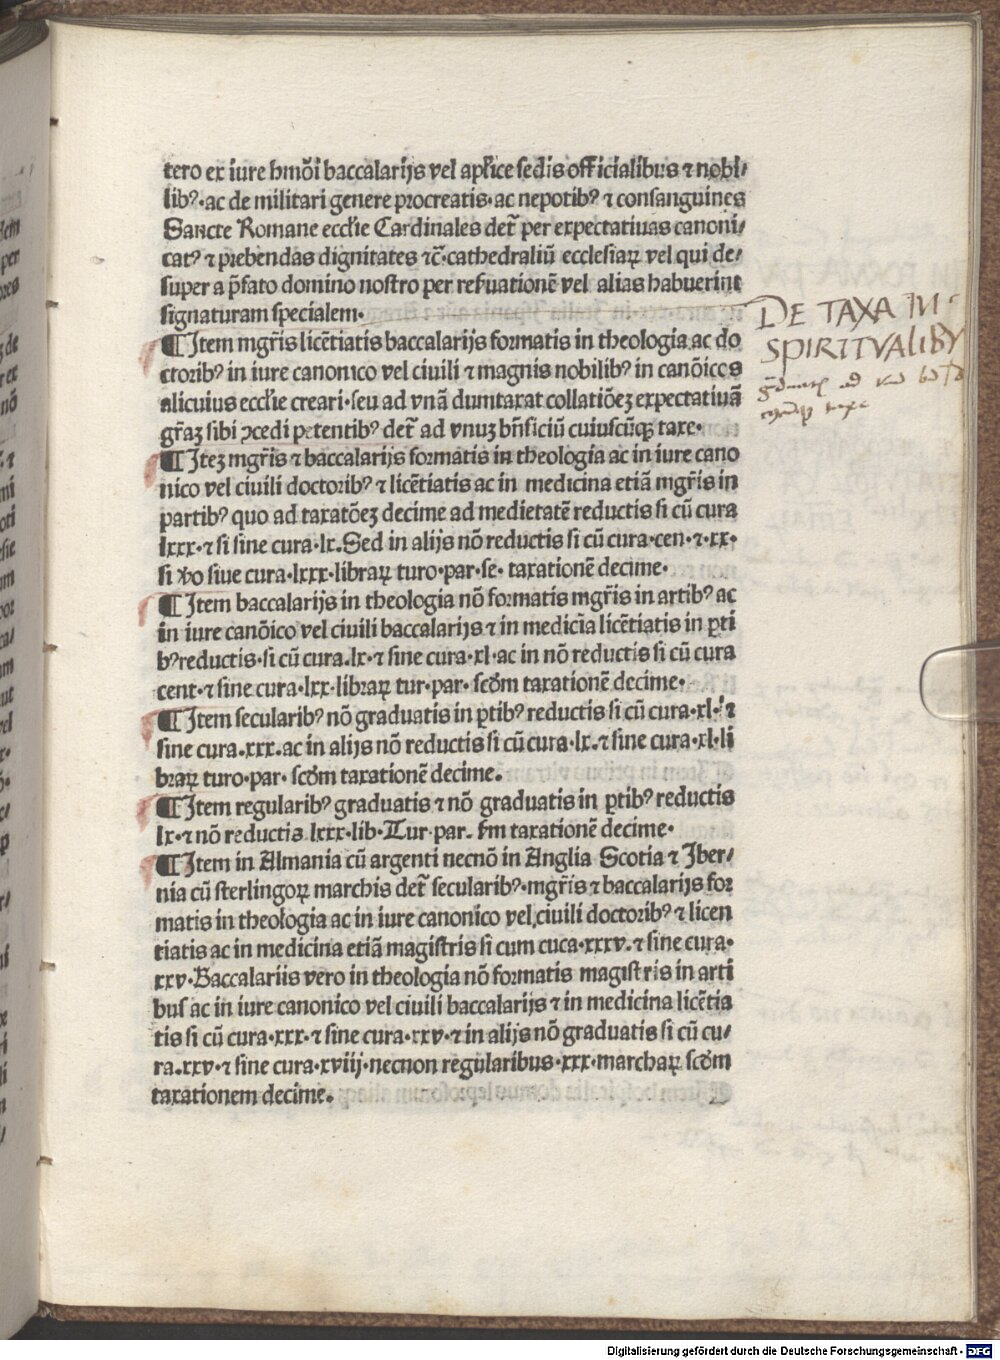 tero ex iure hmōi baccalarijs vel apl̄ice sedis officialibus ⁊ nobi/
libꝰ·ac de militari genere procreatis·ac nepotibꝰ ⁊ consanguineis
Sancte Romane eccl̄ie Cardinales det̄ per expectatiuas canoni/
catꝰ ⁊ prebendas dignitates ⁊c̄·cathedraliū ecclesiaꝝ vel qui de/
super a p̄fato domino nostro per reſuationē vel alias habuerint
signaturam specialem·
¶Item mgr̄is licētiatis baccalarijs formatis in theologia ac do
ctoribꝰ in iure canonico vel ciuili ⁊ magnis nobilibꝰ in canōicos
alicuius eccl̄ie creari·seu ad vnā dumtaxat collatiōeꝫ expectatiuā
gr̄aꝫ sibi ꝯcedi petentibꝰ det̄ ad vnuꝫ bn̄ficiū cuiuscūqꝫ taxe·
¶Iteꝫ mgr̄is ⁊ baccalarijs formatis in theologia ac in iure cano
nico vel ciuili doctoribꝰ ⁊ licētiatis ac in medicina etiā mgr̄is in
partibꝰ quo ad taxatōeꝫ decime ad medietatē reductis si cū cura
lxxx·⁊ si sine cura·lx.Sed in alijs nō reductis si cū cura·cen·⁊·xx·
si v̓o siue cura·lxxx·libraꝝ turo·par·se· taxationē decime·
¶Item baccalarijs in theologia nō formatis mgr̄is in artibꝰ ac
in iure canōico vel ciuili baccalarijs ⁊ in medicīa licētiatis in ꝑti
bꝰreductis·si cū cura.lx·⁊ sine cura·xl·ac in nō reductis si cū cura
cent·⁊ sine cura·lxx·libraꝝ tur·par· scd̄m taxationē decime·
¶Item secularibꝰ nō graduatis in ꝑtibꝰ reductis si cū cura·xl·⁊
sine cura.xxx.ac in alijs nō reductis si cū cura·lx.⁊ sine cura·xl·li
braꝝ turo·par· scd̄m taxationē decime.
¶Item regularibꝰ graduatis ⁊ nō graduatis in ꝑtibꝰ reductis
lx·⁊ nō reductis lxxx·lib·Tur·par. ſm taxationē decime·
¶Item in Almania cū argenti necnō in Anglia Scotia ⁊ Iber/
nia cū sterlingoꝝ marchis det̄ secularibꝰ·mgr̄is ⁊ baccalarijs for
matis in theologia ac in iure canonico vel ciuili doctoribꝰ ⁊ licen
tiatis ac in medicina etiā magistris si cum cuca·xxxv.⁊ sine cura·
xxv·Baccalariis vero in theologia nō formatis magistris in arti
bus ac in iure canonico vel ciuili baccalarijs ⁊ in medicina licētia
tis si cū cura·xxx·⁊ sine cura·xxv·⁊ in alijs nō graduatis si cū cu/
ra.xxv·⁊ sine cura·xviij·necnon regularibus·xxx·marchaꝝ scd̄m
taxationem decime.
DE TAXA IN
SPIRITVALIBꝰ
Digitalisierung gefördert durch die Deutsche Forschungsgemeinschaft - DFG